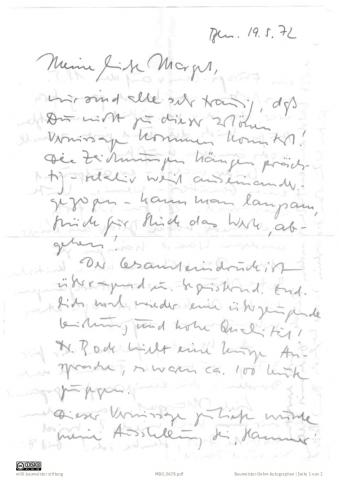 19.5.72
Meine liebe Margot,
wir sind alle sehr traurig, daß
Du nicht zu dieser schönen
Vernissage kommen konntest!
Die Zeichnungen hängen präch-
tig – relativ weit auseinander-
gezogen – kann man langsam,
Stück für Stück das Werk, ab-
gehen!
Der Gesamteindruck ist
überragend u. begeisternd. End-
lich mal wieder eine überzeugende
Leistung und hohe Qualität!
Dr. Bode hielt eine kurze An-
sprache, es waren ca. 100 Leute
zugegen.
Dieser Vernissage zuliebe wurde
meine Ausstellung bei "Hammer"
willi baumeister stiftung
Seite 1 von 2